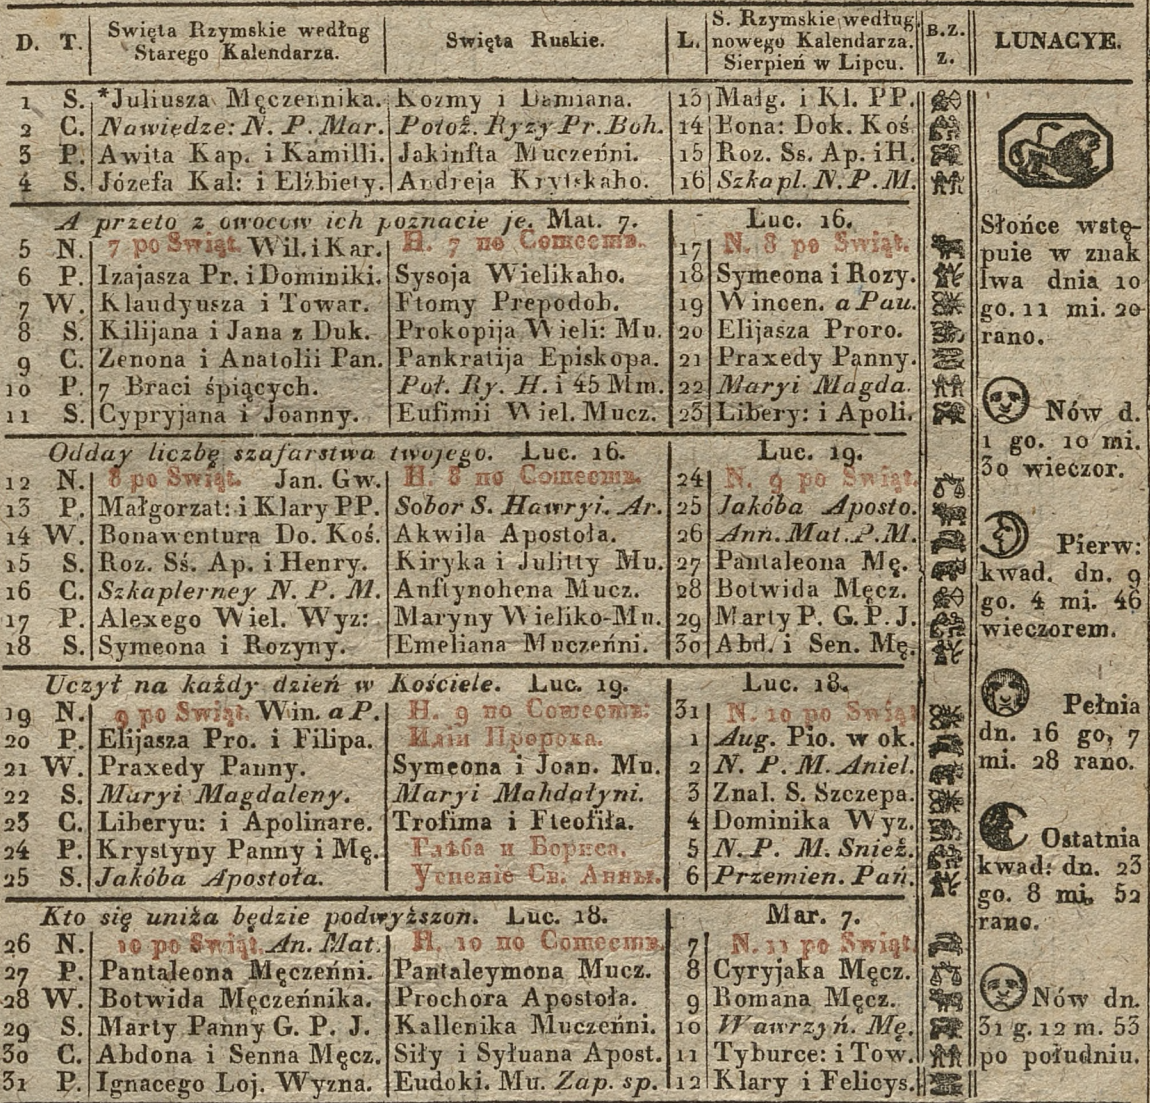 D. T. Swięta Rzymskie według Starego Kalendarza. Swięta Ruskie. L. S. Rzymskie według nowego Kalendarza. Sierpień w Lipcu. B.Z. z. LUNACYE.
1 S. *Juliusza Męczennika. Kozmy i Damiana. 13 Małg. i Kl. PP.
2 C. Nawiedze: N. P. Mar. Położ. Ryzy Pr. Boh. 14 Bona: Dok. Koś.
3 P. Awita Kap. i Kamilli. Jakinfta Muczeńni. 15 Roz. Ss. Ap. i H.
4 S. Józefa Kal: i Elżbiety. Andreja Krytskaho. 16 Szkapl. N. P. M.
A przeto z owocow ich poznacie je. Mat. 7. Luc. 16.
5 N. 7 po Swiąt. Wil. i Kar. Н. 7 по Сошеств. 17 N. 8 po Swiąt.
6 P. Izajasza Pr. i Dominiki. Sysoja Wielikaho. 18 Symeona i Rozy.
7 W. Klaudyusza i Towar. Ftomy Prepodob. 19 Wincen. a Pau.
8 S. Kilijana i Jana z Duk. Prokopija Wieli: Mu. 20 Elijasza Proro.
9 C. Zenona i Anatolii Pan. Pankratija Episkopa. 21 Praxedy Panny.
10 P. 7 Braci śpiących. Poł. Ry. H. i 45 Mm. 22 Maryi Magda.
11 S. Cypryjana i Joanny. Eufimii Wiel. Mucz. 23 Libery: i Apoli.
Odday liczbę szafarstwa twojego. Luc. 16. Luc. 19.
12 N. 8 po Swiąt. Jan. Gw. Н. 8 по Сошеств. 24 N. 9 po Swiąt.
13 P. Małgorzat: i Klary PP. Sobor S. Hawryi. Ar. 25 Jakóba Aposto.
14 W. Bonawentura Do. Koś. Akwila Apostoła. 26 Ann. Mat. P. M.
15 S. Roz. Sś. Ap. i Henry. Kiryka i Julitty Mu. 27 Pantaleona Mę.
16 C. Szkaplerney N. P. M. Anftynohena Mucz. 28 Botwida Męcz.
17 P. Alexego Wiel. Wyz: Maryny Wieliko-Mu. 29 Marty P. G. P. J.
18 S. Symeona i Rozyny. Emeliana Muczeńni. 30 Abd. i Sen. Mę.
Uczył na każdy dzień w Kościele. Luc. 19. Luc. 18.
19 N. 9 po Swiąt. Win. a P. Н. 9 по Сошеств: 31 N. 10 po Swiąt
20 P. Elijasza Pro. i Filipa. Иліи Пророка. 1 Aug. Pio. w ok.
21 W. Praxedy Panny. Symeona i Joan. Mu. 2 N. P. M. Aniel.
22 S. Maryi Magdaleny. Maryi Mahdałyni. 3 Znal. S. Szczepa.
23 C. Liberyu: i Apolinare. Trofima i Fteofiła. 4 Dominika Wyz.
24 P. Krystyny Panny i Mę. Глѣба и Бориса. 5 N. P. M. Snież.
25 S. Jakóba Apostoła. Успеніе Св. Анны. 6 Przemien. Pań.
Kto się uniża będzie podwyższon. Luc. 18. Mar. 7.
26 N. 10 po Swiąt. An. Mat. Н. 10 по Сошеств. 7 N. 11 po Swiąt.
27 P. Pantaleona Męczeńni. Pantaleymona Mucz. 8 Cyryjaka Męcz.
28 W. Botwida Męczeńnika. Prochora Apostoła. 9 Romana Męcz.
29 S. Marty Panny G. P. J. Kallenika Muczeńni. 10 Wawrzyń. Mę.
30 C. Abdona i Senna Męcz. Siły i Syłuana Apost. 11 Tyburce: i Tow.
31 P. Ignacego Loj. Wyzna. Eudoki. Mu. Zap. sp. 12 Klary i Felicys.
Słońce wstę-
puie w znak
lwa dnia 10
go. 11 mi. 20
rano.
Nów d.
1 go. 10 mi.
30 wieczor.
Pierw:
kwad. dn. 9
go. 4 mi. 46
wieczorem.
Pełnia
dn. 16 go, 7
mi. 28 rano.
Ostatnia
kwad: dn. 23
go. 8 mi, 52
rano.
Nów dn.
31 g. 12 m. 53
po południu.